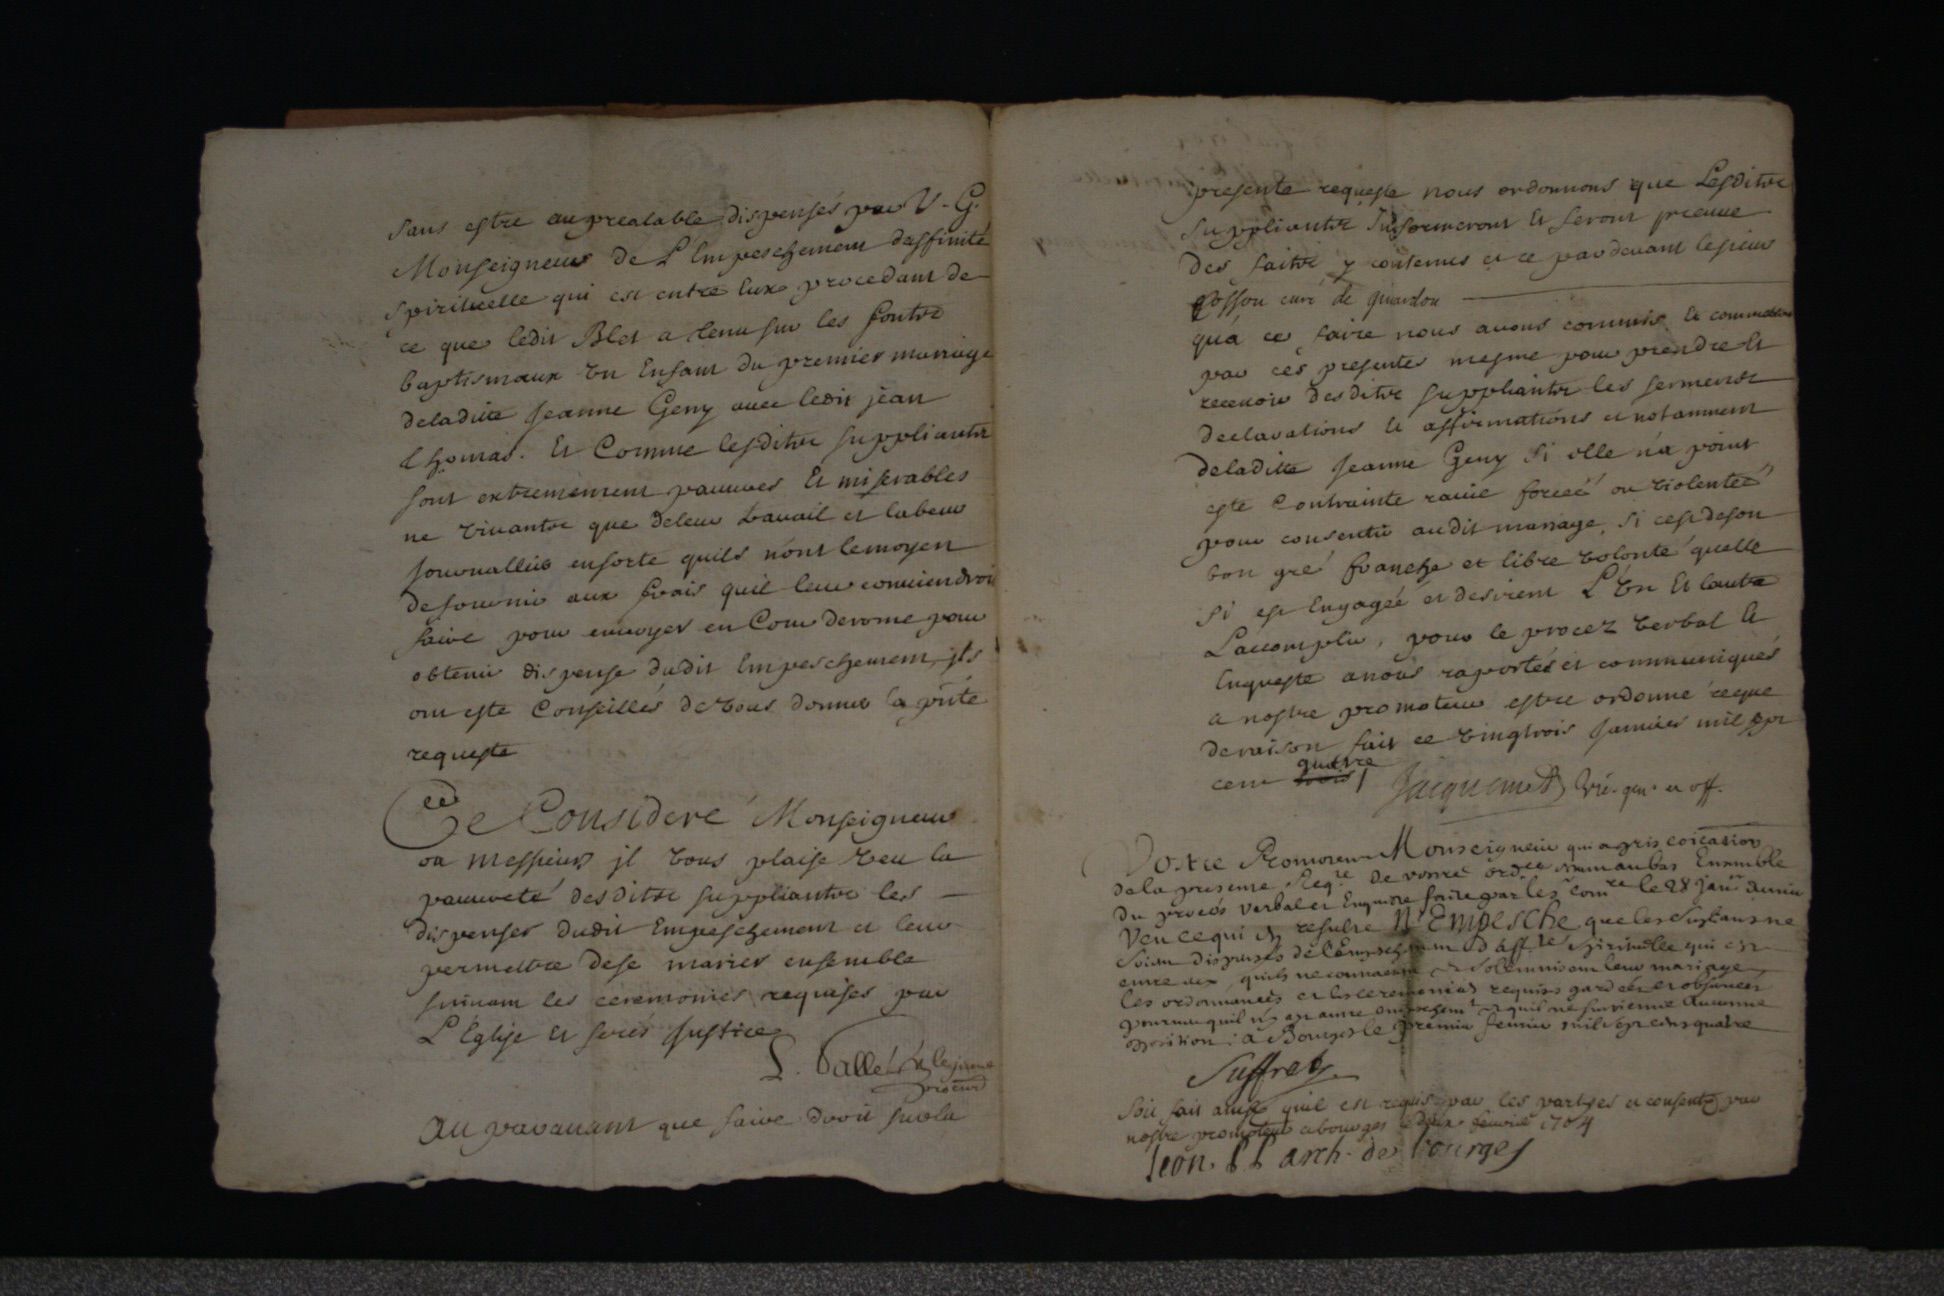 sans estre au prealable dispensés par V. G.
Monseigneur de L'Empeschement d'affinité
spirituelle qui est entre Eux procedant de
ce que ledit Blet a tenu sur les fontz
baptismaux un Enfant du premier mariage
deladitte Jeanne Geny avec ledit jean
thomas. Et Comme lesditz suppliantz
sont extremement pauvres Et miserables
ne vivantz que deleur travail et labeur
Journallier ensorte quils n'ont lemoyen
defournir aux frais quil leur conviendroit
faire pour envoyer en Cour derome pour
obtenir dispense dudit Empeschement, jls
ont esté Conseillés de vous donner la pnte
requeste
Ce Consideré Monseigneur
ou messieurs jl vous plaise veu la
pauvreté desditz suppliantz les
dispenser dudit Empeschement et leur
permettre dese marier ensemble
suivant les ceremonies requises par
L'Eglise et ferés Justice
lejeune
procur
Au paravant que faire droit sur la
presente requeste nous ordonnons que Lesditz
suppliantz Informeront Et feront preuve
des faitz y contenus et ce pardevant lesieur
curé de
qu'a ce faire nous avons commis et commettons
par ces presentes mesme pour prendre Et
recevoir desditz suppliantz les sermentz
declarations et affirmations et notamment
deladitte Jeanne Geny si elle n'a point
esté Contrainte ravie forcée ou violentée
pour consentir audit mariage, si cest deson
bon gré franche et libre volonté quelle
si est Engagée et desirent L'un Et lautre
L'accomplir, pour le procez verbal et
Enqueste a nous raportés et communiqués
a nostre promoteur estre ordonné ceque
deraison fait ce vingtrois Janvier mil sept
cent trois quatre
Jacquemet vic. gen. et off.
Vostre Promoteur Monseigneur qui a pris coication
dela presente Reqte de vostre ordce estant aubas Ensemble
du procés verbal et Enqueste faite par les comre le 28 janr dernier
Veu ce qui en resulte N'Empesche que les supliants ne
soient dispensés de l'Empeschement d'affte spirituelle qui est
entre eux, quils ne contractent et solemnisent leur mariage,
les ordonnances et les ceremonies requises gardées et observées
pourveu quil n'y ayt autre empeschemt et quil ne survienne Aucunne
oposition: a Bourges le premier fevrier mil sept cens quatre
Suffret
Soit fait ainsy quil est requis par les partyes et consenty par
nostre promoteur a bourges le deux fevrier 1704
leon. P P arch. de bourges